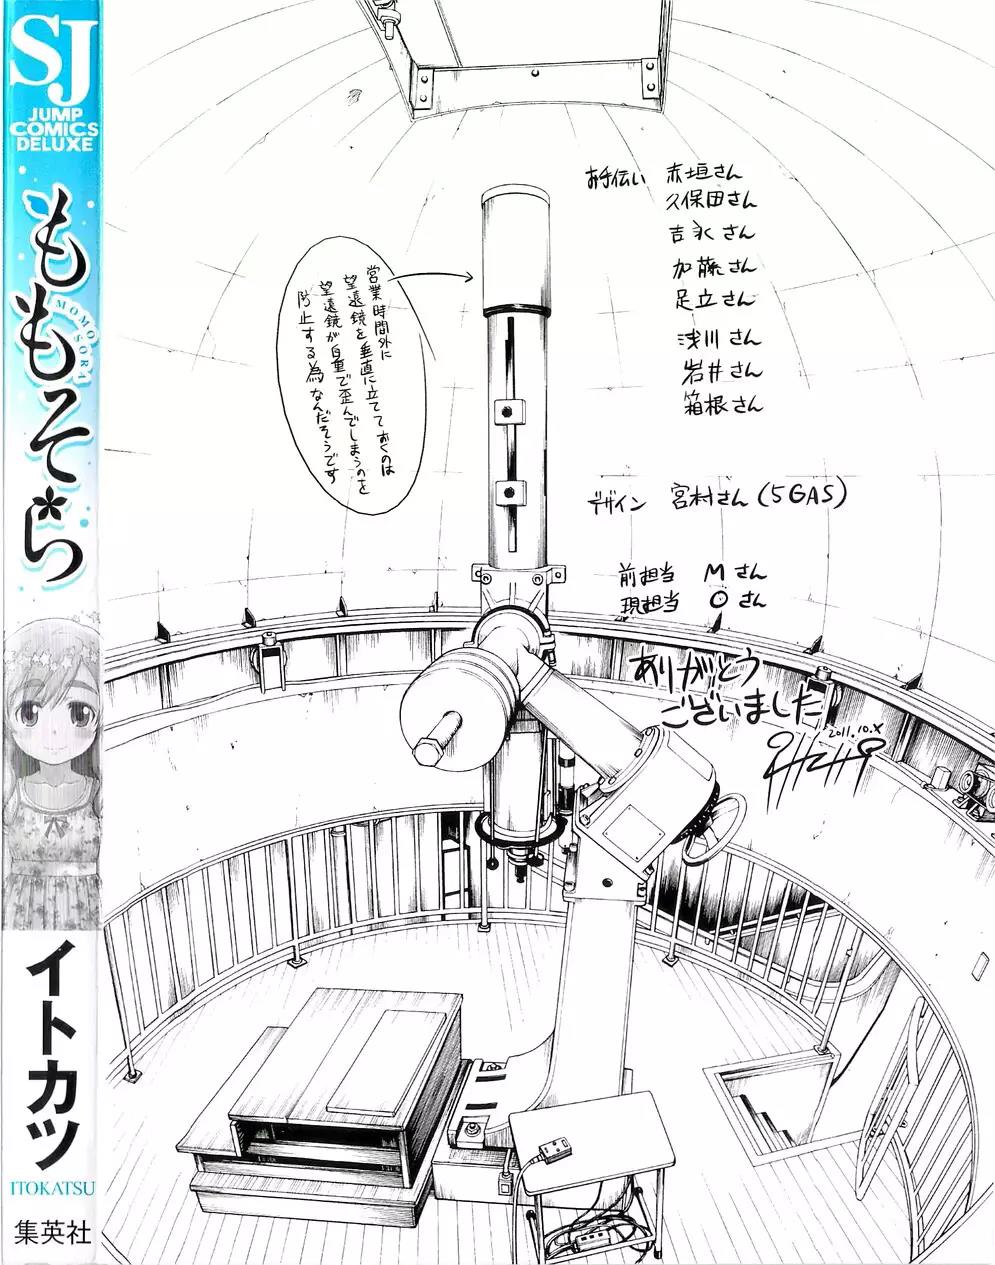 SJ
JUMP
COMICS
DELUXE
ももそら
MOMO
SORA
イトカツ
ITOKATSU
集英社
営業時間外に
望遠鏡を垂直に立てておくのは
望遠鏡が自重で歪んでしまうのを
防止する為なんだそうです
お手伝い 赤垣さん
久保田さん
吉永さん
加藤さん
足立さん
浅川さん
岩井さん
箱根さん
デザイン 宮村さん(5GAS)
前担当 Mさん
現担当 Oさん
ありがとう
ございました
2011.10.X